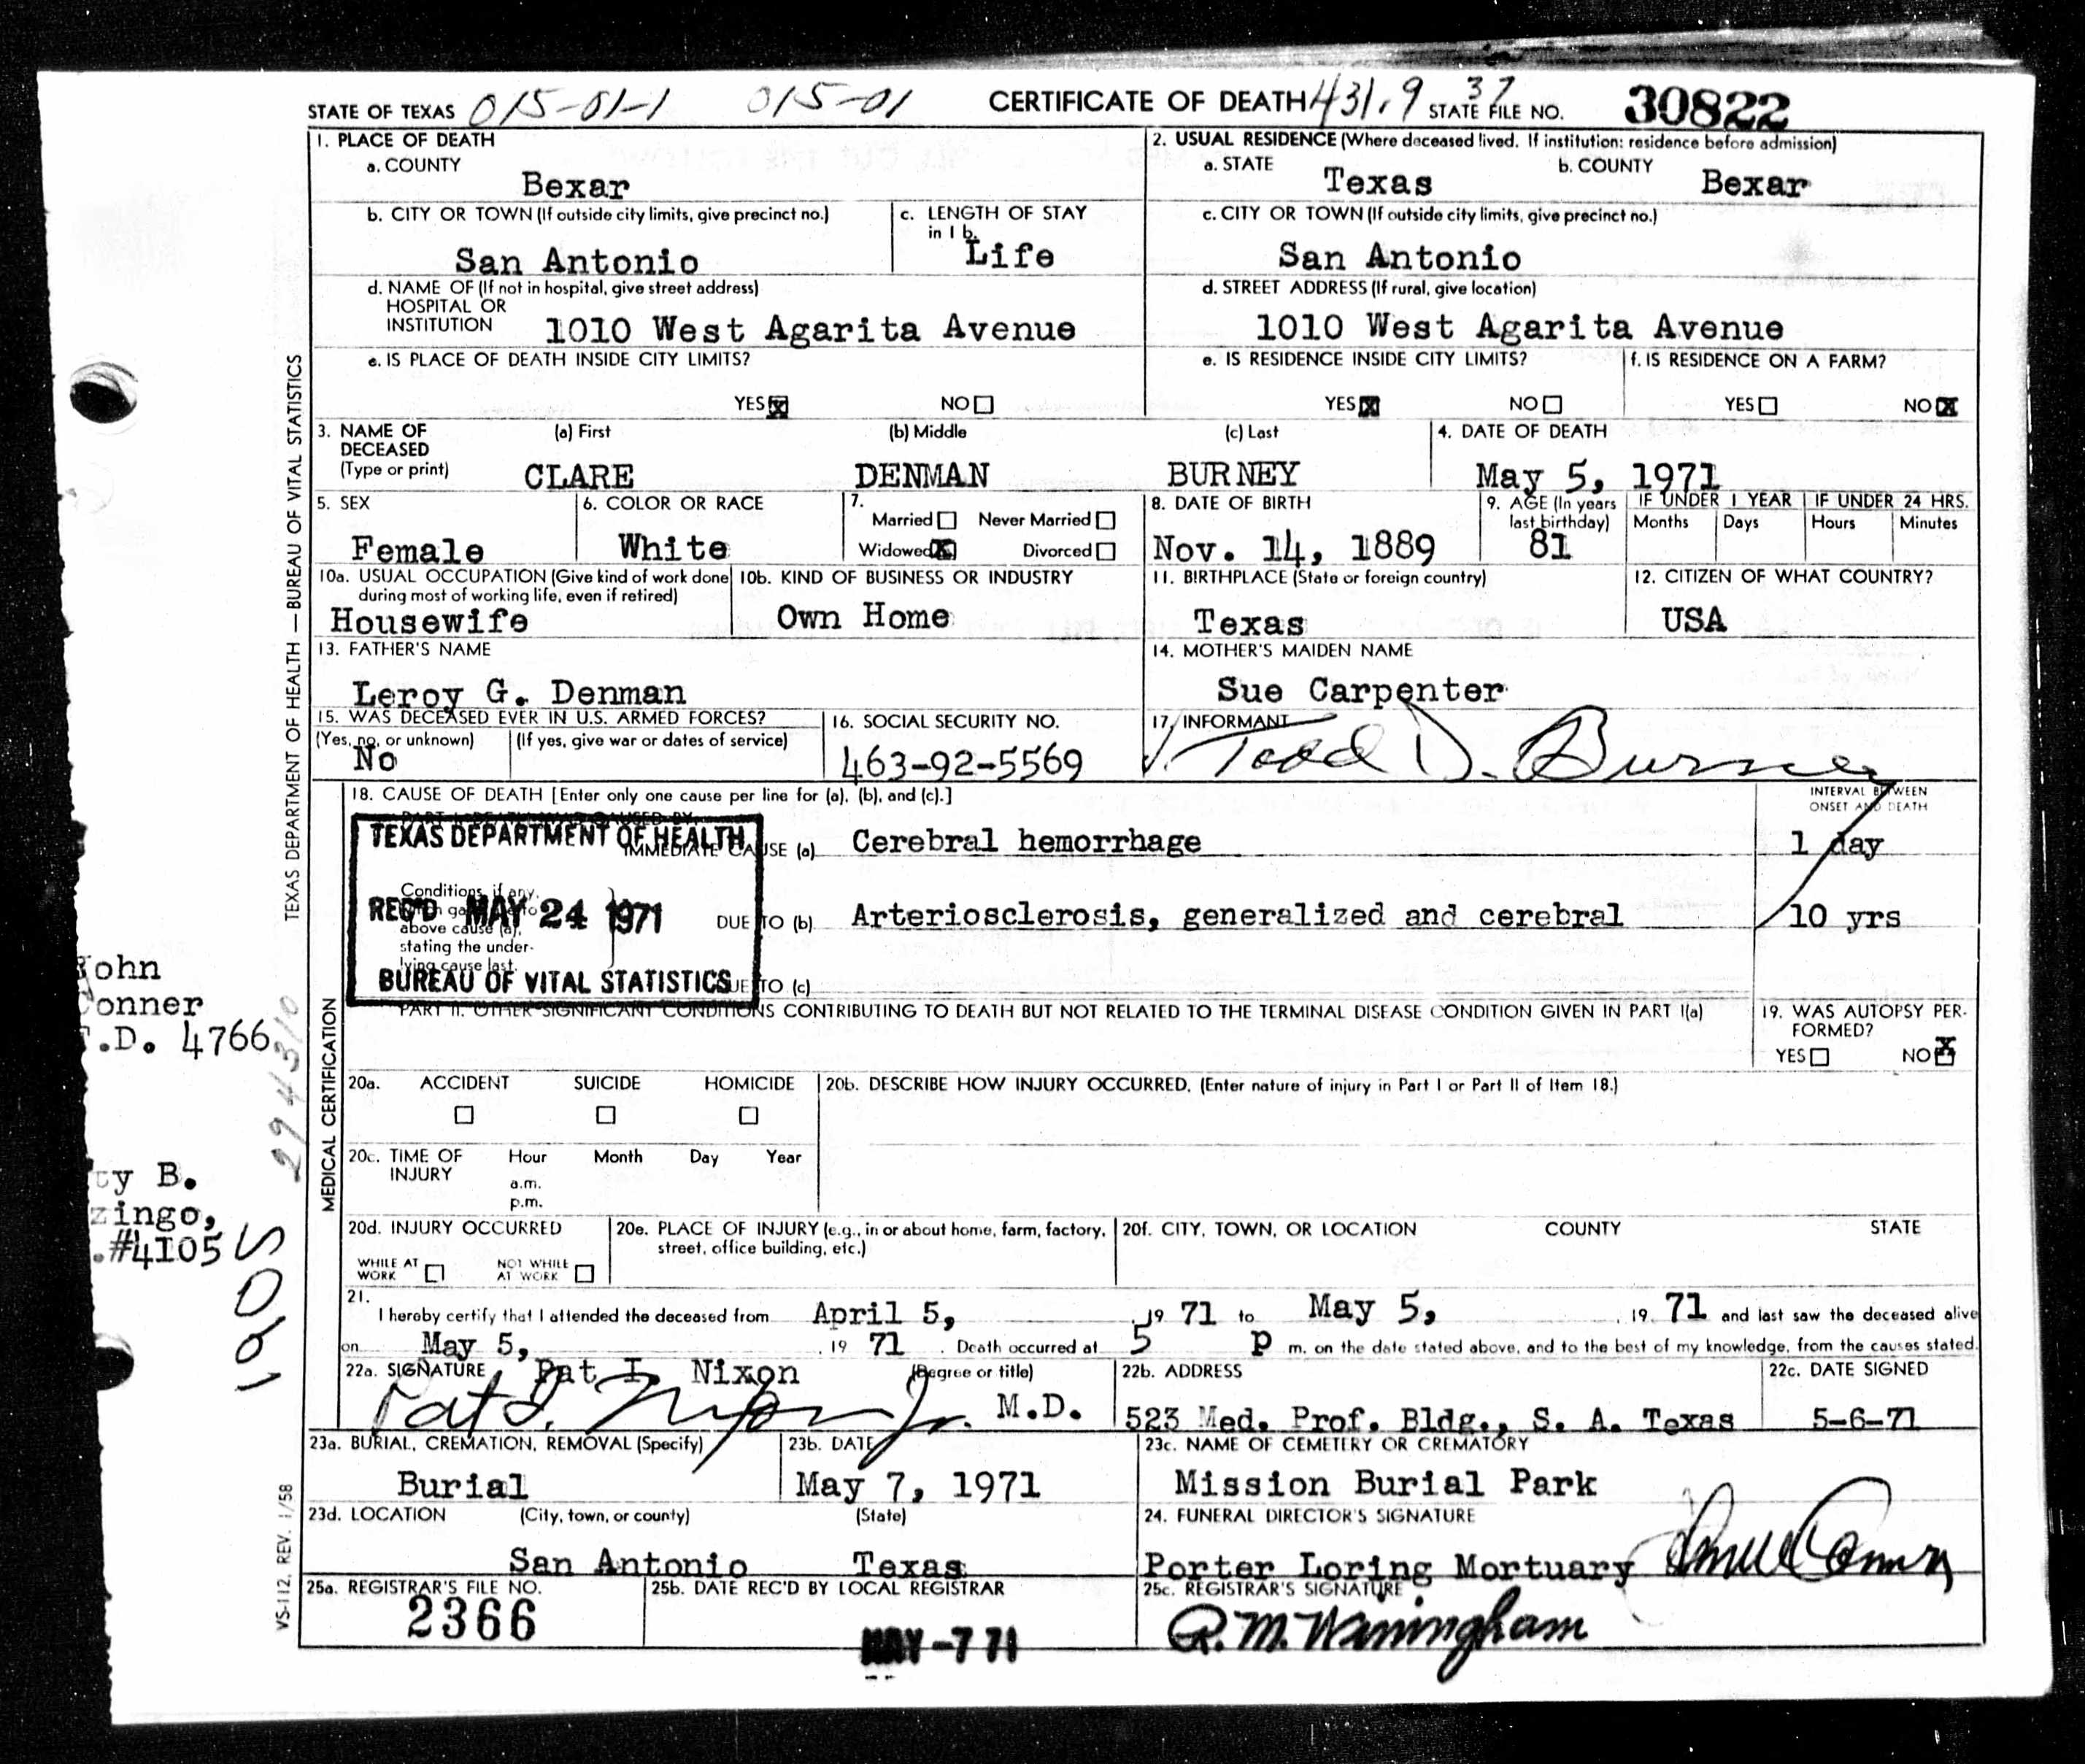 STATE OF TEXAS 015-01-1 015-01 CERTIFICATE OF DEATH 431.9 37 STATE FILE NO. 30822
1. PLACE OF DEATH
a. COUNTY
Bexar
2. USUAL RESIDENCE (Where deceased lived. If institution: residence before admission)
a. STATE Texas b. COUNTY Bexar
b. CITY OR TOWN (If outside city limits, give precinct no.)
San Antonio
c. LENGTH OF STAY in 1 b.
Life
c. CITY OR TOWN (If outside city limits, give precinct no.)
San Antonio
d. NAME OF (If not in hospital, give street address)
HOSPITAL OR
INSTITUTION 1010 West Agarita Avenue
d. STREET ADDRESS (If rural, give location)
1010 West Agarita Avenue
e. IS PLACE OF DEATH INSIDE CITY LIMITS?
YES X NO
e. IS RESIDENCE INSIDE CITY LIMITS?
YES X NO
f. IS RESIDENCE ON A FARM?
YES NO X
3. NAME OF DECEASED (Type or print)
(a) First (b) Middle (c) Last
CLARE DENMAN BURNEY
4. DATE OF DEATH
May 5, 1971
5. SEX
Female
6. COLOR OR RACE
White
7.
Married Never Married
Widowed X Divorced
8. DATE OF BIRTH
Nov. 14, 1889
9. AGE (In years last birthday)
81
IF UNDER 1 YEAR
Months Days
IF UNDER 24 HRS.
Hours Minutes
10a. USUAL OCCUPATION (Give kind of work done
during most of working life, even if retired)
Housewife
10b. KIND OF BUSINESS OR INDUSTRY
Own Home
11. BIRTHPLACE (State or foreign country)
Texas
12. CITIZEN OF WHAT COUNTRY?
USA
13. FATHER'S NAME
Leroy G. Denman
14. MOTHER'S MAIDEN NAME
Sue Carpenter
15. WAS DECEASED EVER IN U.S. ARMED FORCES?
(Yes, no, or unknown) (If yes, give war or dates of service)
No
16. SOCIAL SECURITY NO.
463-92-5569
17. INFORMANT
Todd D. Burney
18. CAUSE OF DEATH [Enter only one cause per line for (a), (b), and (c).]
INTERVAL BETWEEN
ONSET AND DEATH
PART I. DEATH WAS CAUSED BY:
IMMEDIATE CAUSE (a) Cerebral hemorrhage 1 day
Conditions, if any,
which gave rise to
above cause (a),
stating the under-
lying cause last.
DUE TO (b) Arteriosclerosis, generalized and cerebral 10 yrs
DUE TO (c)
TEXAS DEPARTMENT OF HEALTH
REC'D MAY 24 1971
BUREAU OF VITAL STATISTICS
PART II. OTHER SIGNIFICANT CONDITIONS CONTRIBUTING TO DEATH BUT NOT RELATED TO THE TERMINAL DISEASE CONDITION GIVEN IN PART I(a)
19. WAS AUTOPSY PER-
FORMED?
YES NO X
20a. ACCIDENT SUICIDE HOMICIDE
20b. DESCRIBE HOW INJURY OCCURRED. (Enter nature of injury in Part I or Part II of Item 18.)
20c. TIME OF INJURY Hour Month Day Year
a.m.
p.m.
20d. INJURY OCCURRED
WHILE AT WORK NOT WHILE AT WORK
20e. PLACE OF INJURY (e.g., in or about home, farm, factory,
street, office building, etc.)
20f. CITY, TOWN, OR LOCATION COUNTY STATE
21.
I hereby certify that I attended the deceased from April 5, 19 71 to May 5, 19 71 and last saw the deceased alive
on May 5, 19 71. Death occurred at 5 P m. on the date stated above, and to the best of my knowledge, from the causes stated.
22a. SIGNATURE Pat I. Nixon (Degree or title)
Pat I. Nixon Jr. M.D.
22b. ADDRESS
523 Med. Prof. Bldg., S. A. Texas
22c. DATE SIGNED
5-6-71
23a. BURIAL, CREMATION, REMOVAL (Specify)
Burial
23b. DATE
May 7, 1971
23c. NAME OF CEMETERY OR CREMATORY
Mission Burial Park
23d. LOCATION (City, town, or county) (State)
San Antonio Texas
24. FUNERAL DIRECTOR'S SIGNATURE
Porter Loring Mortuary
25a. REGISTRAR'S FILE NO.
2366
25b. DATE REC'D BY LOCAL REGISTRAR
MAY -7 71
25c. REGISTRAR'S SIGNATURE
TEXAS DEPARTMENT OF HEALTH — BUREAU OF VITAL STATISTICS
MEDICAL CERTIFICATION
VS-112, REV. 1/58
ohn
onner
.D. 4766
294310
ty B.
zingo,
.#4105